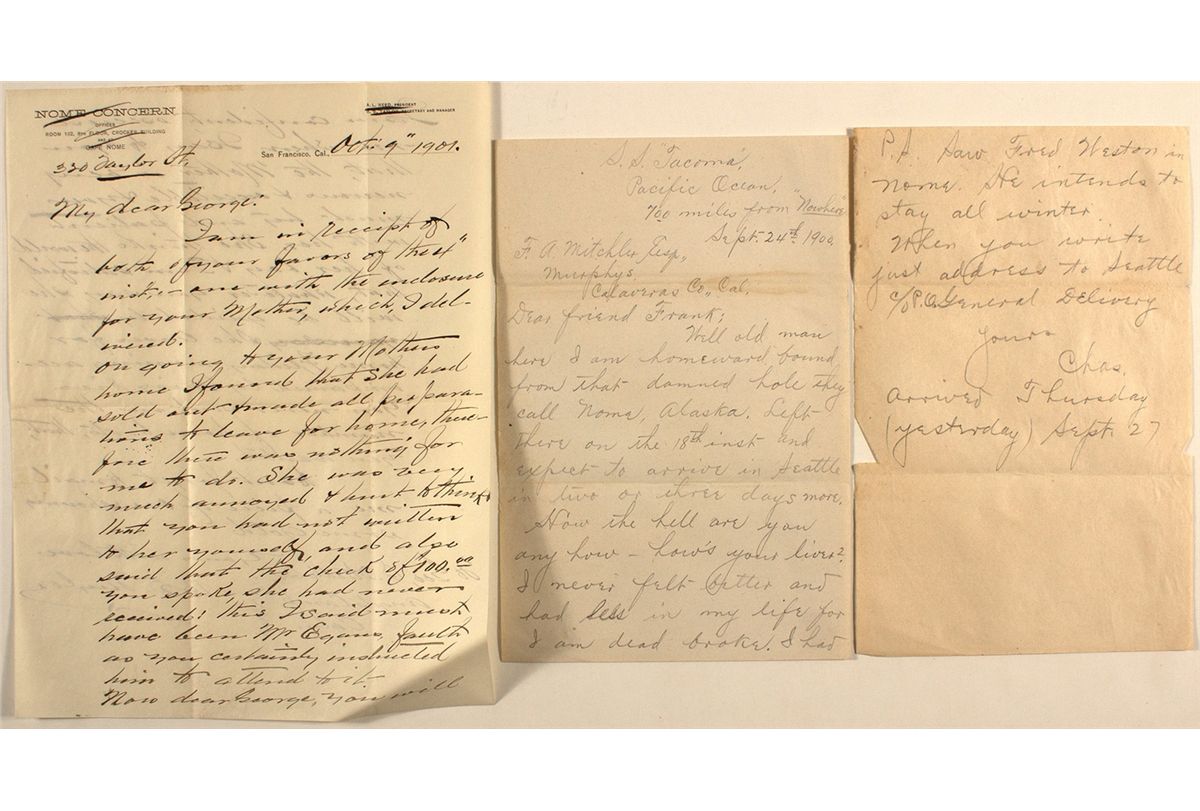 NOME CONCERN
OFFICES
ROOM 102, 8TH FLOOR, CROCKER BUILDING
CAPE NOME
A. L. REED, PRESIDENT
SECRETARY AND MANAGER
330 Taylor St,
San Francisco, Cal., Oct. 9" 1901.
My dear George:
I am in receipt of
both of your favors of the
inst, – one with the enclosure
for your Mother, which I del-
ivered.
On going to your Mothers
home I found that She had
sold out & made all prepara-
tions to leave for home, there-
fore there was nothing for
me to do. She was very
much annoyed & hurt to think
that you had not written
to her yourself, and also
said that the check of $100.00
you spoke, she had never
received! this I said must
have been Mr Egans, fault
as you certainly instructed
him to attend to it.
Now dear George, you will
S. S. Tacoma,
Pacific Ocean,
700 miles from "Nowhere"
Sept. 24th 1900.
F. A. Mitchler Esq.,
Murphys
Calaveras Co., Cal.
Dear friend Frank:
Well old man
here I am homeward bound
from that damned hole they
call Nome, Alaska. Left
there on the 18th inst and
expect to arrive in Seattle
in two or three days more.
How the hell are you
any how – how's your liver?
I never felt better and
had less in my life for
I am dead broke. I had
P.S. Saw Fred Weston in
Nome. He intends to
stay all winter.
When you write
just address to Seattle
c/o P.O. General Delivery
Yours
Chas.
Arrived Thursday
(yesterday) Sept. 27